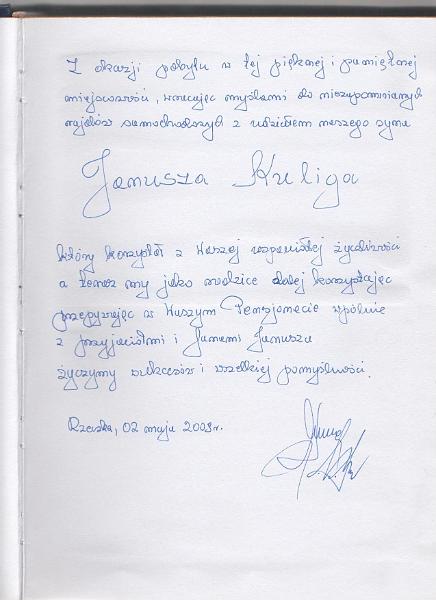 Z okazji pobytu w tej pięknej i pamiętnej
miejscowości, wracając myślami do niezapomnianych
rajdów samochodowych z udziałem naszego syna
Janusza Kuliga
który korzystał z Waszej wspaniałej życzliwości
a teraz my jako rodzice dalej korzystając
przebywając w Waszym Pensjonacie wspólnie
z przyjaciółmi i fanami Janusza
życzymy sukcesów i wszelkiej pomyślności.
Rzeczka, 02 maja 2008r.